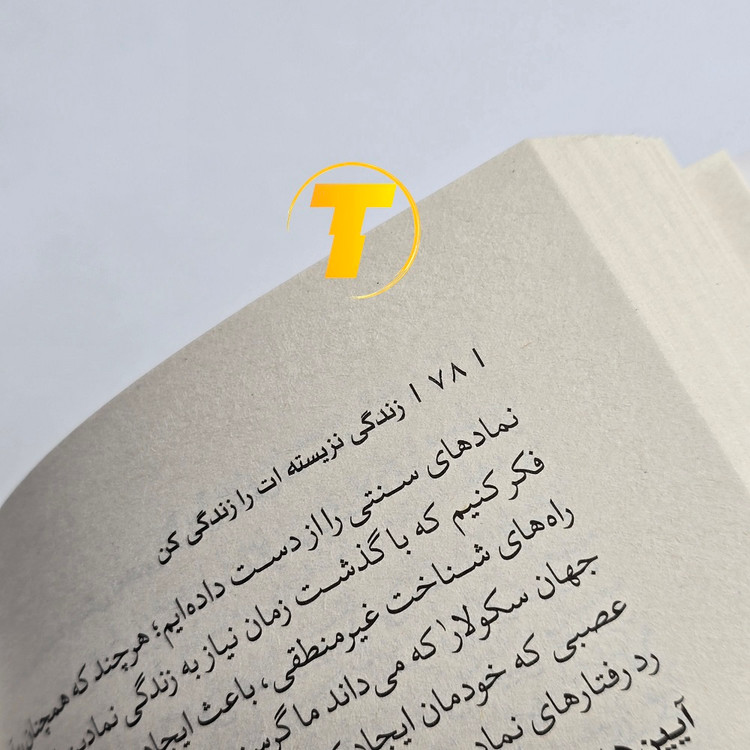 T
| ۷۸ | زندگی نزیسته ات را زندگی کن
نمادهای سنتی را از دست داده‌ایم؛ هرچند که همچنان
فکر کنیم که با گذشت زمان نیاز به زندگی
راه‌های شناخت غیرمنطقی، باعث ایجاد
جهان سکولار۱ که می‌داند ما
عصبی که خودمان ایجاد
رد رفتارهای